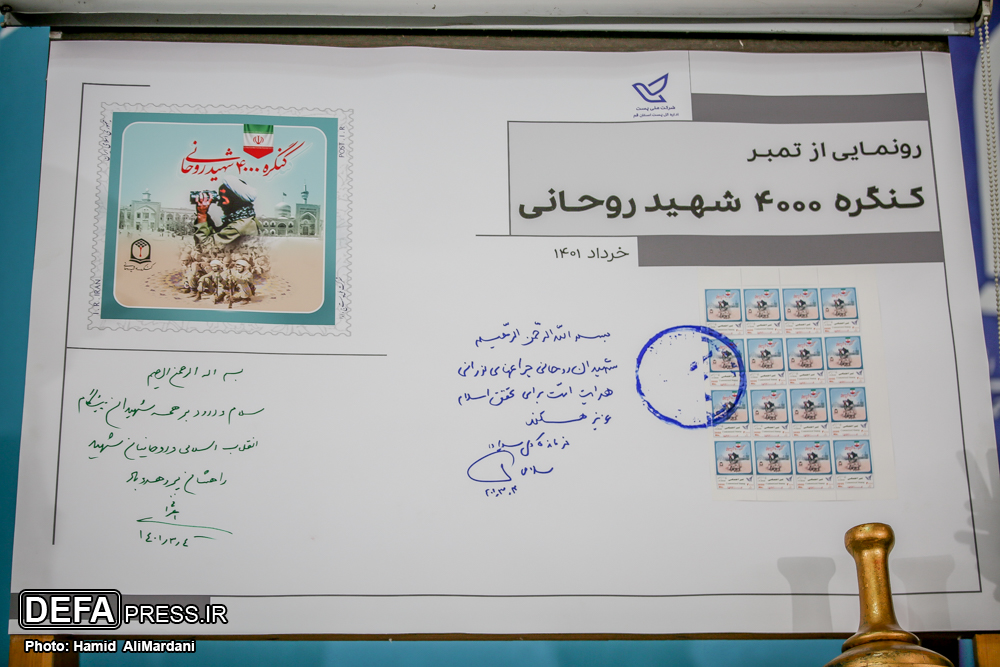 شرکت ملی پست
اداره کل پست استان قم
رونمایی از تمبر
کنگره ۴۰۰۰ شهید روحانی
خرداد ۱۴۰۱
کنگره ۴۰۰۰ شهید روحانی
POST. I. R
I. R. IRAN
بسم الله الرحمن الرحیم
شهیدان روحانی چراغهای نورانی
هدایت امت برای تحقق اسلام
عزیز هستند
فرمانده کل سپاه
سلامی
بسم الله الرحمن الرحیم
سلام و درود بر همه شهیدان
انقلاب اسلامی و روحانیان شهید
راهشان پر رهرو باد
۱۴۰۱/۳/۴
DEFAPRESS.IR
Photo: Hamid AliMardani